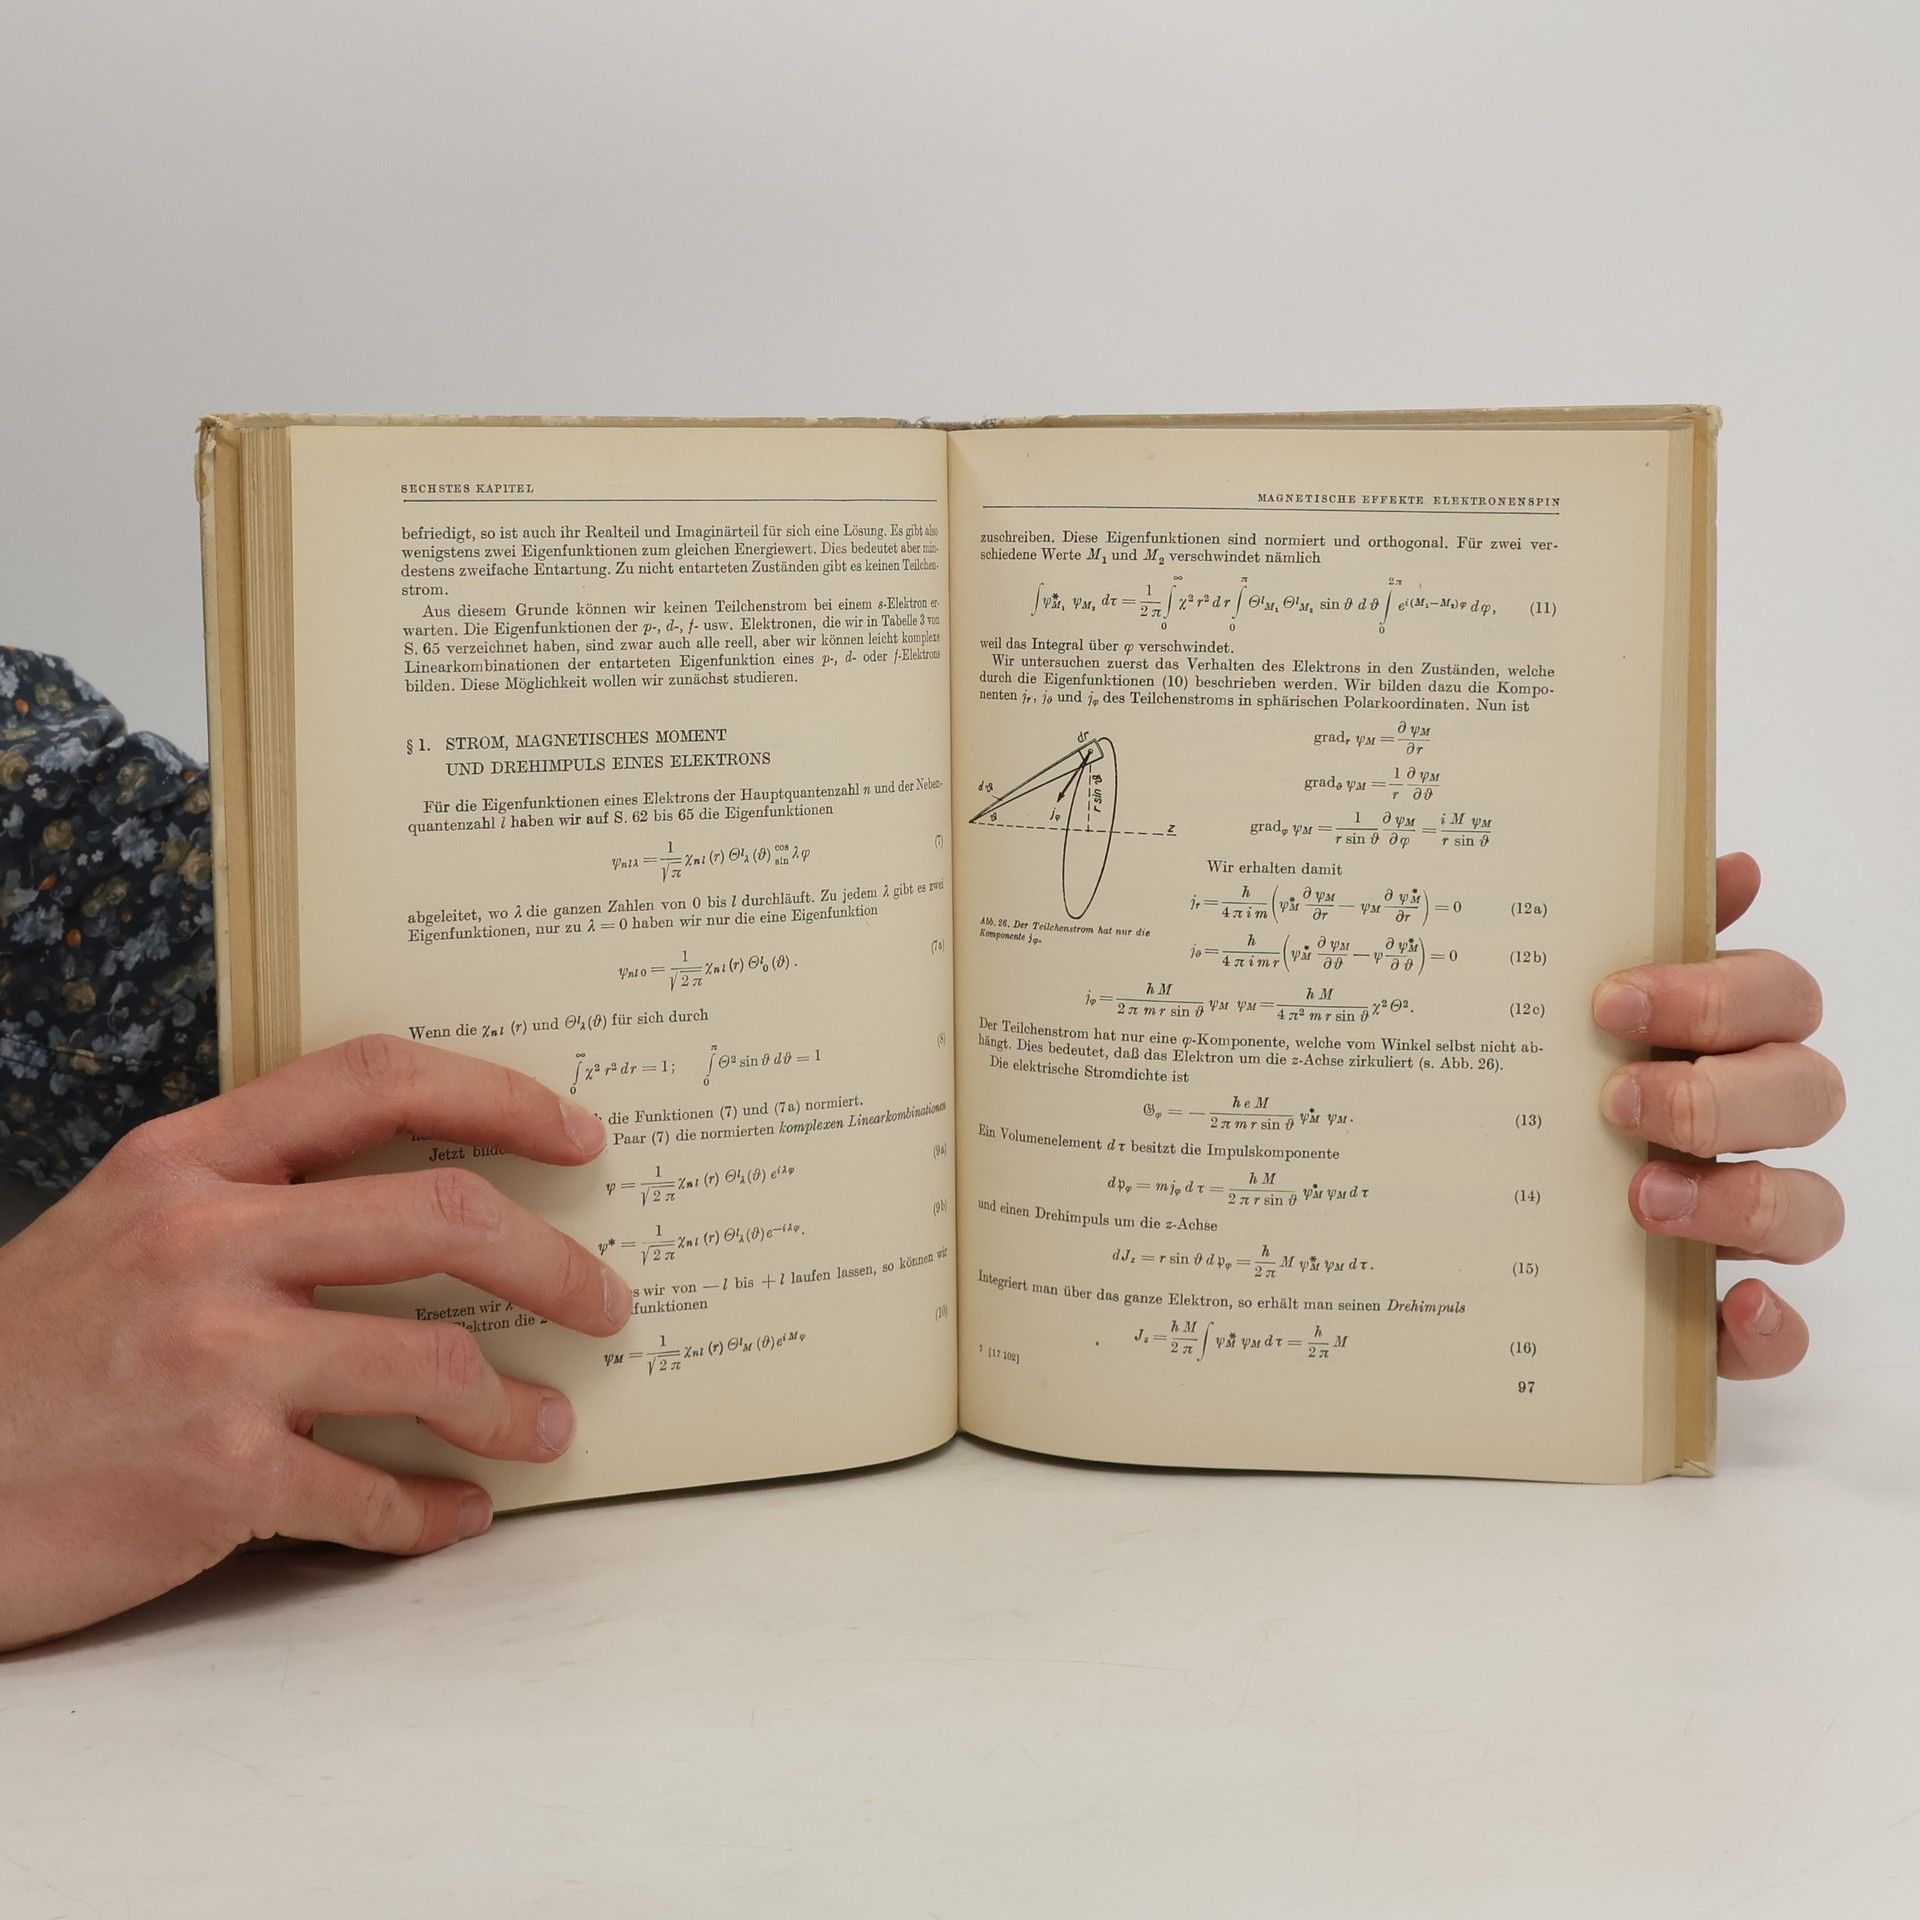 SECHSTES KAPITEL
befriedigt, so ist auch ihr Realteil und Imaginärteil für sich eine Lösung. Es gibt also
wenigstens zwei Eigenfunktionen zum gleichen Energiewert. Dies bedeutet aber min-
destens zweifache Entartung. Zu nicht entarteten Zuständen gibt es keinen Teilchen-
strom.
Aus diesem Grunde können wir keinen Teilchenstrom bei einem s-Elektron er-
warten. Die Eigenfunktionen der p-, d-, f- usw. Elektronen, die wir in Tabelle 3 von
S. 65 verzeichnet haben, sind zwar auch alle reell, aber wir können leicht komplexe
Linearkombinationen der entarteten Eigenfunktion eines p-, d- oder f-Elektrons
bilden. Diese Möglichkeit wollen wir zunächst studieren.
§ 1. STROM, MAGNETISCHES MOMENT
UND DREHIMPULS EINES ELEKTRONS
Für die Eigenfunktionen eines Elektrons der Hauptquantenzahl n und der Neben-
quantenzahl l haben wir auf S. 62 bis 65 die Eigenfunktionen
ψₙₗλ = 1/√π χₙₗ (r) Θˡλ (ϑ) cos sin λφ (7)
abgeleitet, wo λ die ganzen Zahlen von 0 bis l durchläuft. Zu jedem λ gibt es zwei
Eigenfunktionen, nur zu λ = 0 haben wir nur die eine Eigenfunktion
ψₙₗ₀ = 1/√2π χₙₗ (r) Θˡ₀ (ϑ) . (7a)
Wenn die χₙₗ (r) und Θˡλ(ϑ) für sich durch
∫₀^∞ χ² r² dr = 1; ∫₀^π Θ² sin ϑ dϑ = 1 (8)
die Funktionen (7) und (7a) normiert.
Jetzt Paar (7) die normierten komplexen Linearkombinationen
ψ = 1/√2π χₙₗ (r) Θˡλ(ϑ) e^{iλφ} (9a)
ψ* = 1/√2π χₙₗ (r) Θˡλ(ϑ) e^{−iλφ}. (9b)
Ersetzen wir λ wir von — l bis + l laufen lassen, so können wir
die
ψ_M = 1/√2π χₙₗ (r) Θˡ_M (ϑ) e^{iMφ} (10)
MAGNETISCHE EFFEKTE ELEKTRONENSPIN
zuschreiben. Diese Eigenfunktionen sind normiert und orthogonal. Für zwei ver-
schiedene Werte M₁ und M₂ verschwindet nämlich
∫ψ*_{M₁} ψ_{M₂} dτ = 1/2π ∫₀^∞ χ² r² dr ∫₀^π Θˡ_{M₁} Θˡ_{M₂} sin ϑ dϑ ∫₀^{2π} e^{i(M₁−M₂)φ} dφ, (11)
weil das Integral über φ verschwindet.
Wir untersuchen zuerst das Verhalten des Elektrons in den Zuständen, welche
durch die Eigenfunktionen (10) beschrieben werden. Wir bilden dazu die Kompo-
nenten jᵣ, j_ϑ und j_φ des Teilchenstroms in sphärischen Polarkoordinaten. Nun ist
gradᵣ ψ_M = ∂ψ_M/∂r
grad_ϑ ψ_M = 1/r ∂ψ_M/∂ϑ
grad_φ ψ_M = 1/(r sin ϑ) ∂ψ_M/∂φ = i M ψ_M/(r sin ϑ)
dr
dϑ
ϑ
j_φ
r sin ϑ
z
Abb. 26. Der Teilchenstrom hat nur die
Komponente j_φ.
Wir erhalten damit
jᵣ = h/(4πim) (ψ*_M ∂ψ_M/∂r − ψ_M ∂ψ*_M/∂r) = 0 (12a)
j_ϑ = h/(4πimr) (ψ*_M ∂ψ_M/∂ϑ − ψ ∂ψ*_M/∂ϑ) = 0 (12b)
j_φ = hM/(2πmr sin ϑ) ψ_M ψ_M = hM/(4π² mr sin ϑ) χ² Θ². (12c)
Der Teilchenstrom hat nur eine φ-Komponente, welche vom Winkel selbst nicht ab-
hängt. Dies bedeutet, daß das Elektron um die z-Achse zirkuliert (s. Abb. 26).
Die elektrische Stromdichte ist
𝔊_φ = − heM/(2πmr sin ϑ) ψ*_M ψ_M. (13)
Ein Volumenelement dτ besitzt die Impulskomponente
d𝔭_φ = mj_φ dτ = hM/(2πr sin ϑ) ψ*_M ψ_M dτ (14)
und einen Drehimpuls um die z-Achse
dJ_z = r sin ϑ d𝔭_φ = h/2π M ψ*_M ψ_M dτ. (15)
Integriert man über das ganze Elektron, so erhält man seinen Drehimpuls
J_z = hM/2π ∫ψ*_M ψ_M dτ = h/2π M (16)
7 [17 102]
97